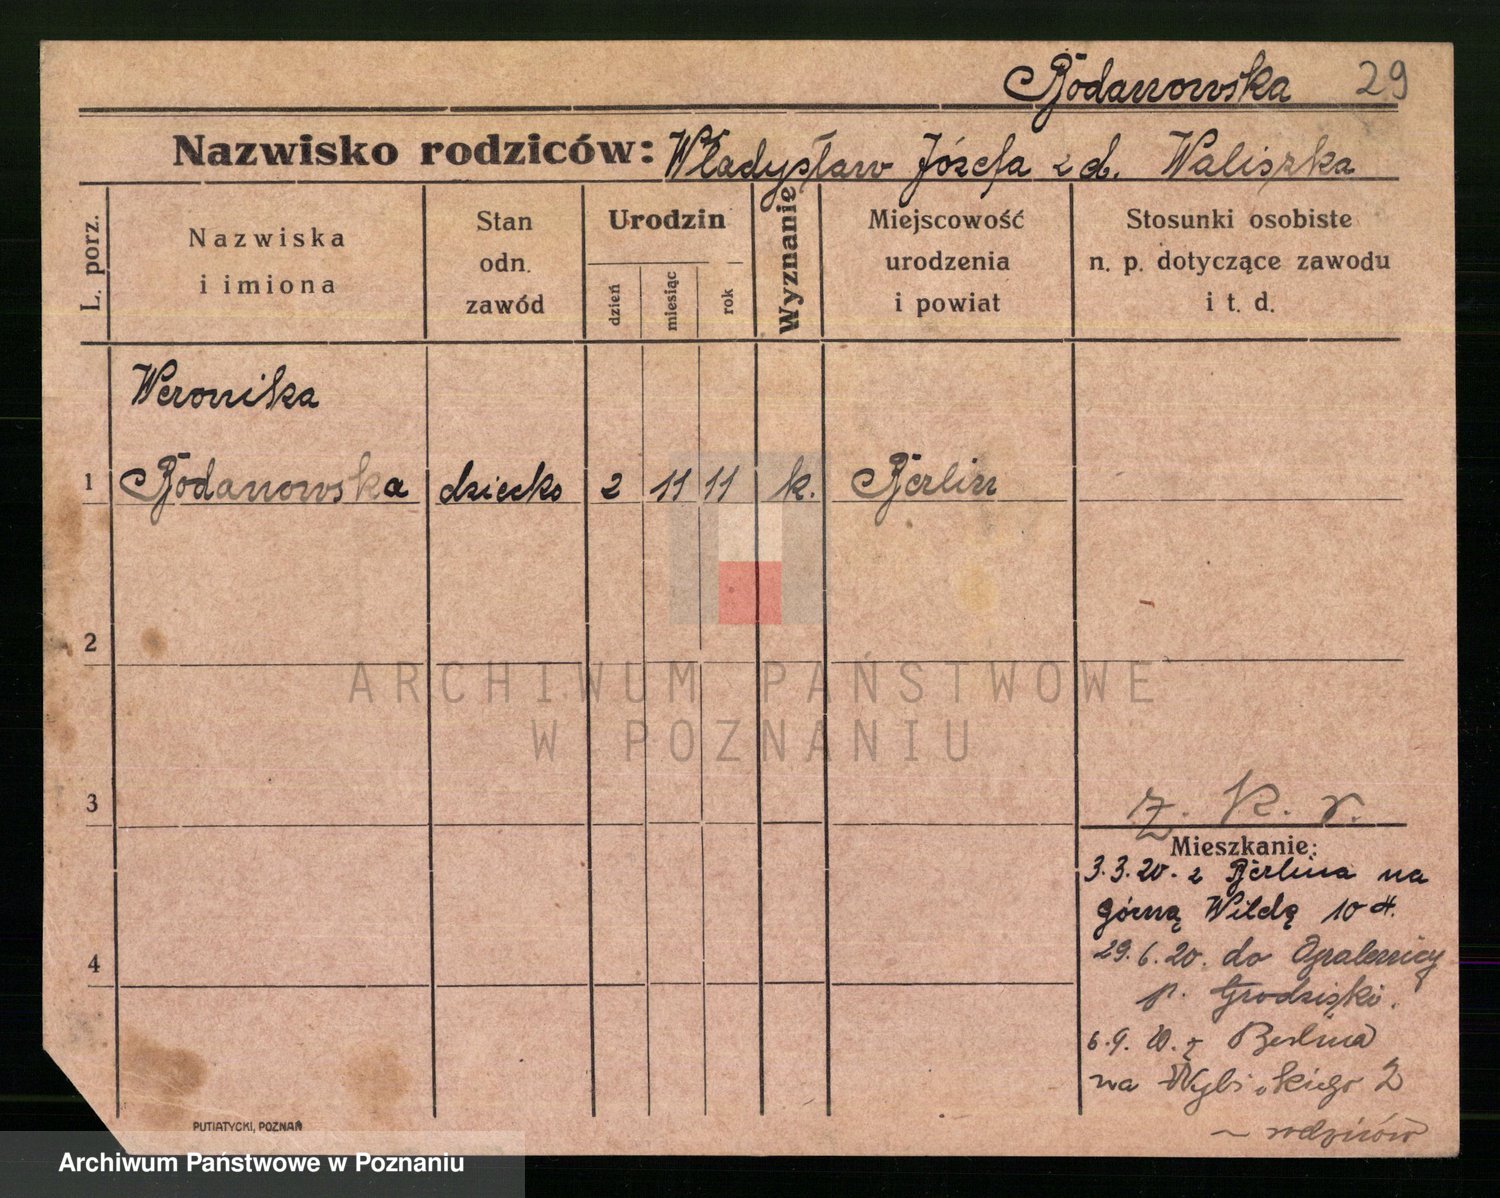 Bodanowska 29
Nazwisko rodziców: Władysław Józefa z d. Waliszka
L. porz.
Nazwiska
i imiona
Stan
odn.
zawód
Urodzin
dzień
miesiąc
rok
Wyznanie
Miejscowość
urodzenia
i powiat
Stosunki osobiste
n. p. dotyczące zawodu
i t. d.
Weronika
1 Bodanowska dziecko 2 11 11 k. Berlin
2
ARCHIWUM PAŃSTWOWE
W POZNANIU
3
z. K. r.
Mieszkanie:
3.3.20. z Berlina na
górną Wildę 10
4
29.6.20. do
p. Grodziski.
6.9.20. z Berlina
na 2
rodziców
PUTIATYCKI, POZNAŃ
Archiwum Państwowe w Poznaniu